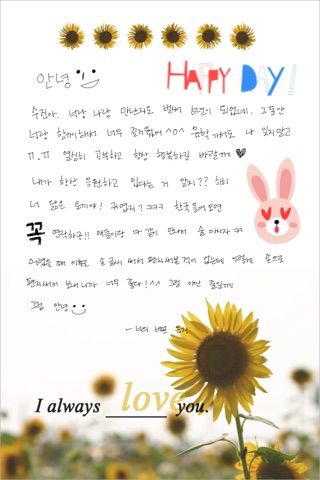 안녕
HAPPY DAY!
수진아. 너랑 나랑 만난지도 벌써 6년이 되었네. 그동안
너랑 함께해서 너무 즐거웠어 ^o^ 유학 가서도 나 잊지말고
ㅠ.ㅠ 열심히 공부하고 항상 행복하길 바랄게 ♥
내가 항상 응원하고 있다는 거 알지?? 히히
너 닮은 토끼야! 귀엽지? ㅋㅋㅋ 한국 들어오면
꼭 연락하구!! 애들이랑 다 같이 만나서 술 마시자 ㅋㅋ
어렸을 때 이후로 손글씨 써서 편지써본 적이 없는데 손으로
편지써서 보내니까 너무 좋다!^^ 그럼 이만 줄일게
그럼 안녕
- 너의 버팀
I always love you.